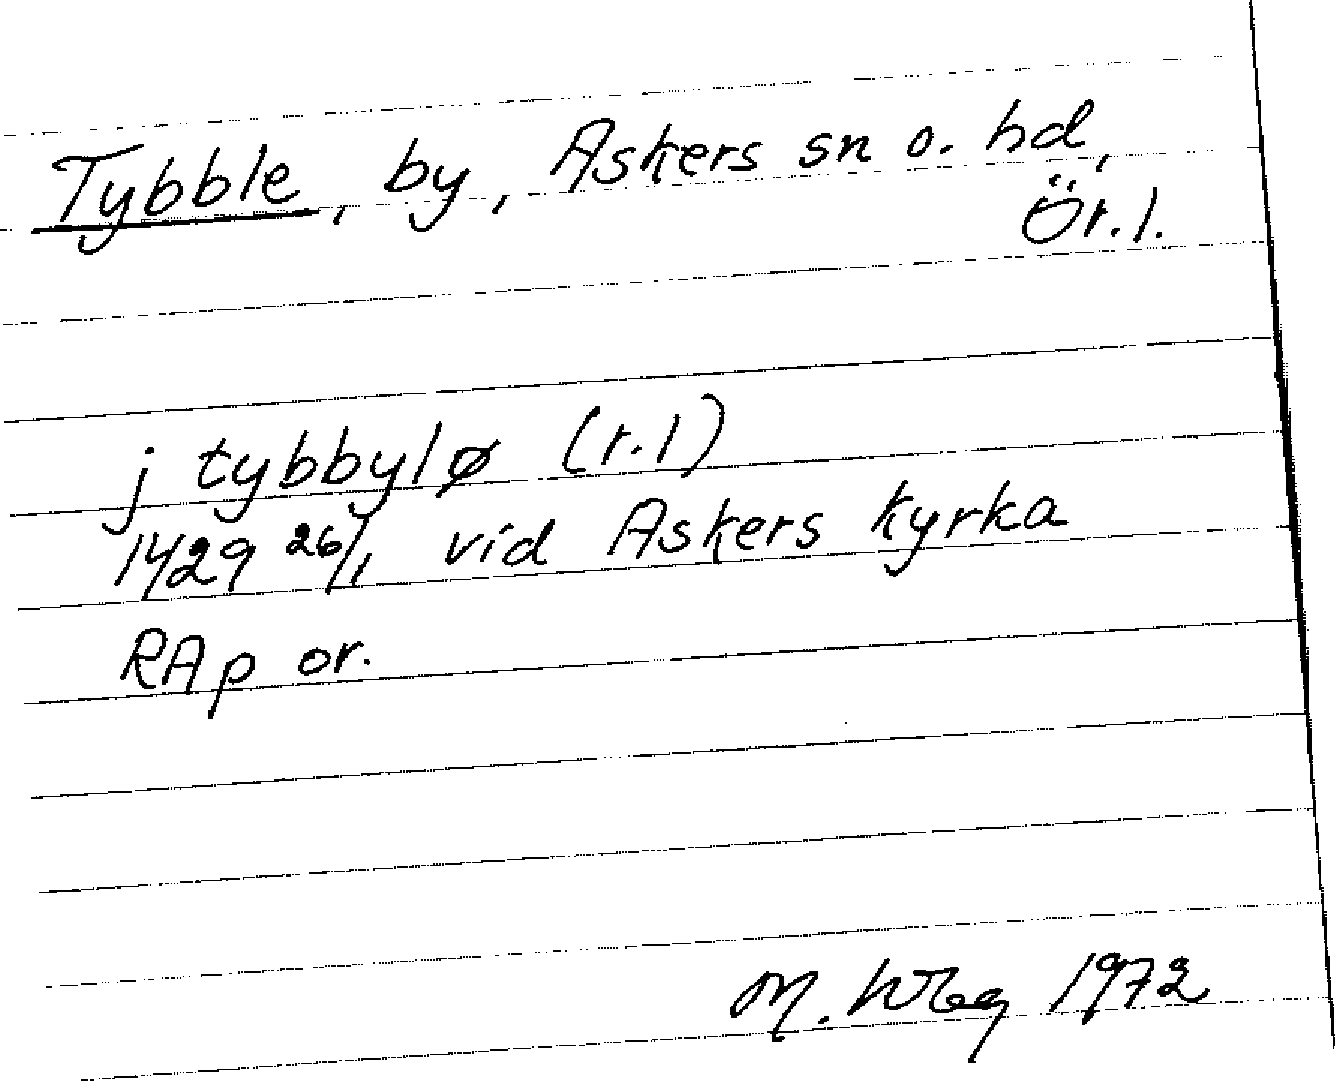 Tybble, by, Askers sn o. hd,
Ör.l.
j tybbylø (r.l)
1429 26/1, vid Askers kyrka
RAp or.
M. Wbg 1972